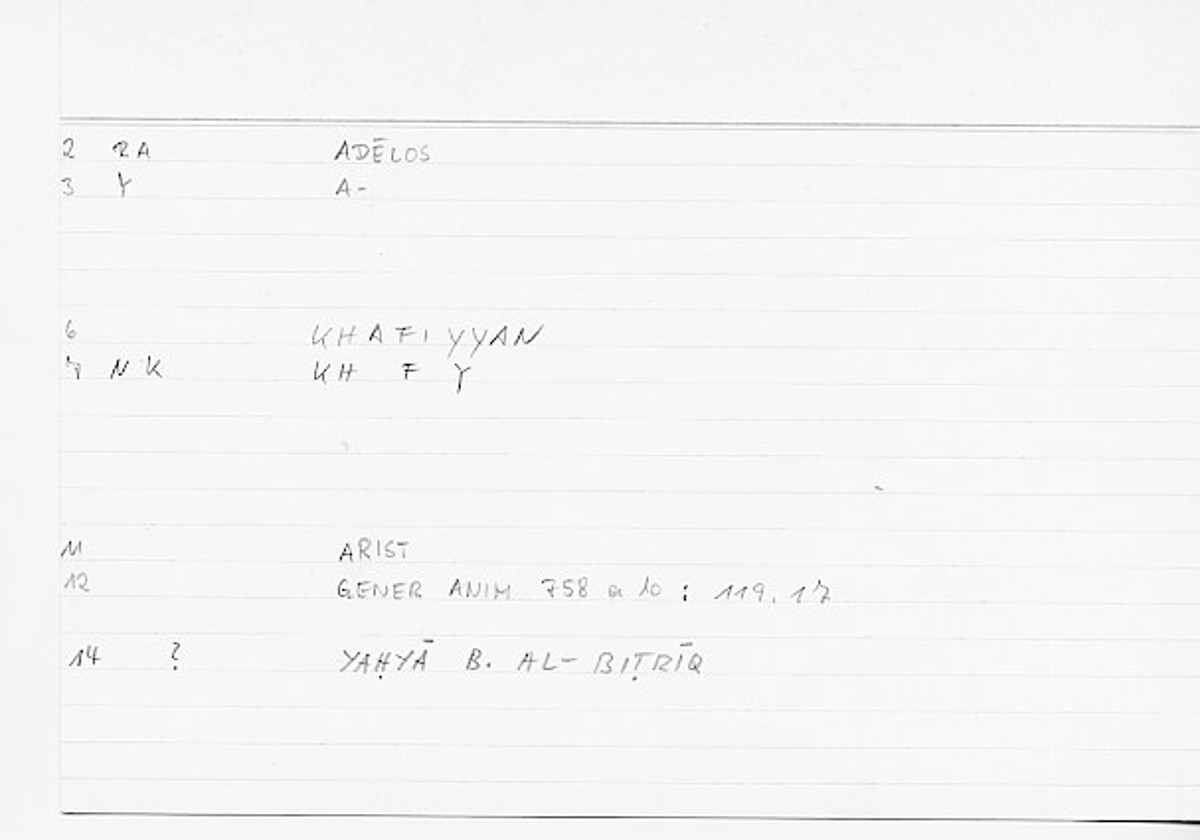 2 RA ADĒLOS
3 Y A-
6 KHAFIYYAN
7 NK KH F Y
11 ARIST
12 GENER ANIM 758 a 10 : 119.17
14 ? YAḤYĀ B. AL-BIṬRĪQ